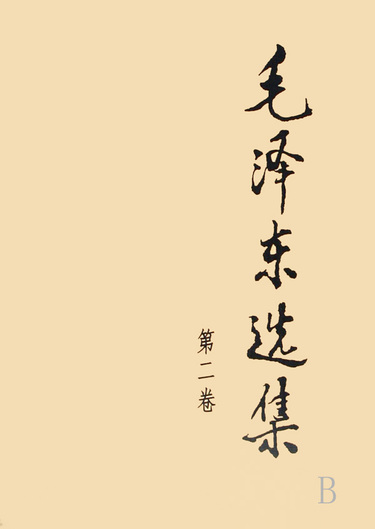 毛泽东选集
第二卷
B